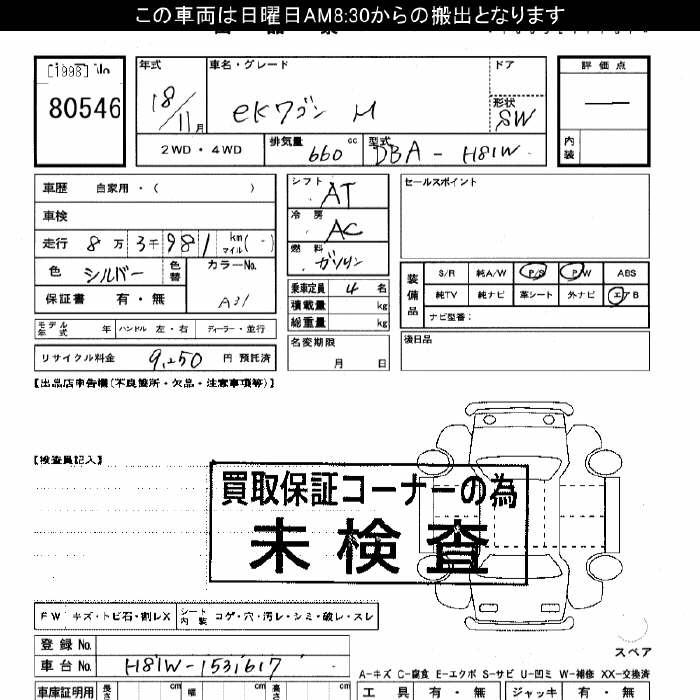 この車両は日曜日AM8:30からの搬出となります
[1998] No
80546
年式 18/11月
車名・グレード eKワゴン M
ドア
形状 SW
評価点 —
内装
2WD・4WD
排気量 660 cc
型式 DBA-H81W
車歴 自家用・( )
車検
走行 8万3千981 km マイル(-)
色 シルバー 色替
カラーNo. A31
保証書 有・無
モデル年式 年 ハンドル 左・右 ディーラー・並行
リサイクル料金 9,250 円 預託済
シフト AT
冷房 AC
燃料 ガソリン
乗車定員 4 名
積載量 kg
総重量 kg
名変期限 月 日
セールスポイント
装備品
S/R 純A/W P/S P/W ABS
純TV 純ナビ 革シート 外ナビ エアB
ナビ型番:
後日品
【出品店申告欄(不良箇所・欠品・注意事項等)】
【検査員記入】
買取保証コーナーの為
未検査
FW キズ・トビ石・割レX
シート内装 コゲ・穴・汚レ・シミ・破レ・スレ
登録No.
車台No. H81W-1531617
スペア
A-キズ C-腐食 E-エクボ S-サビ U-凹ミ W-補修 XX-交換済
車庫証明用 長さ cm 幅 cm 高さ cm
工具 有・無 ジャッキ 有・無